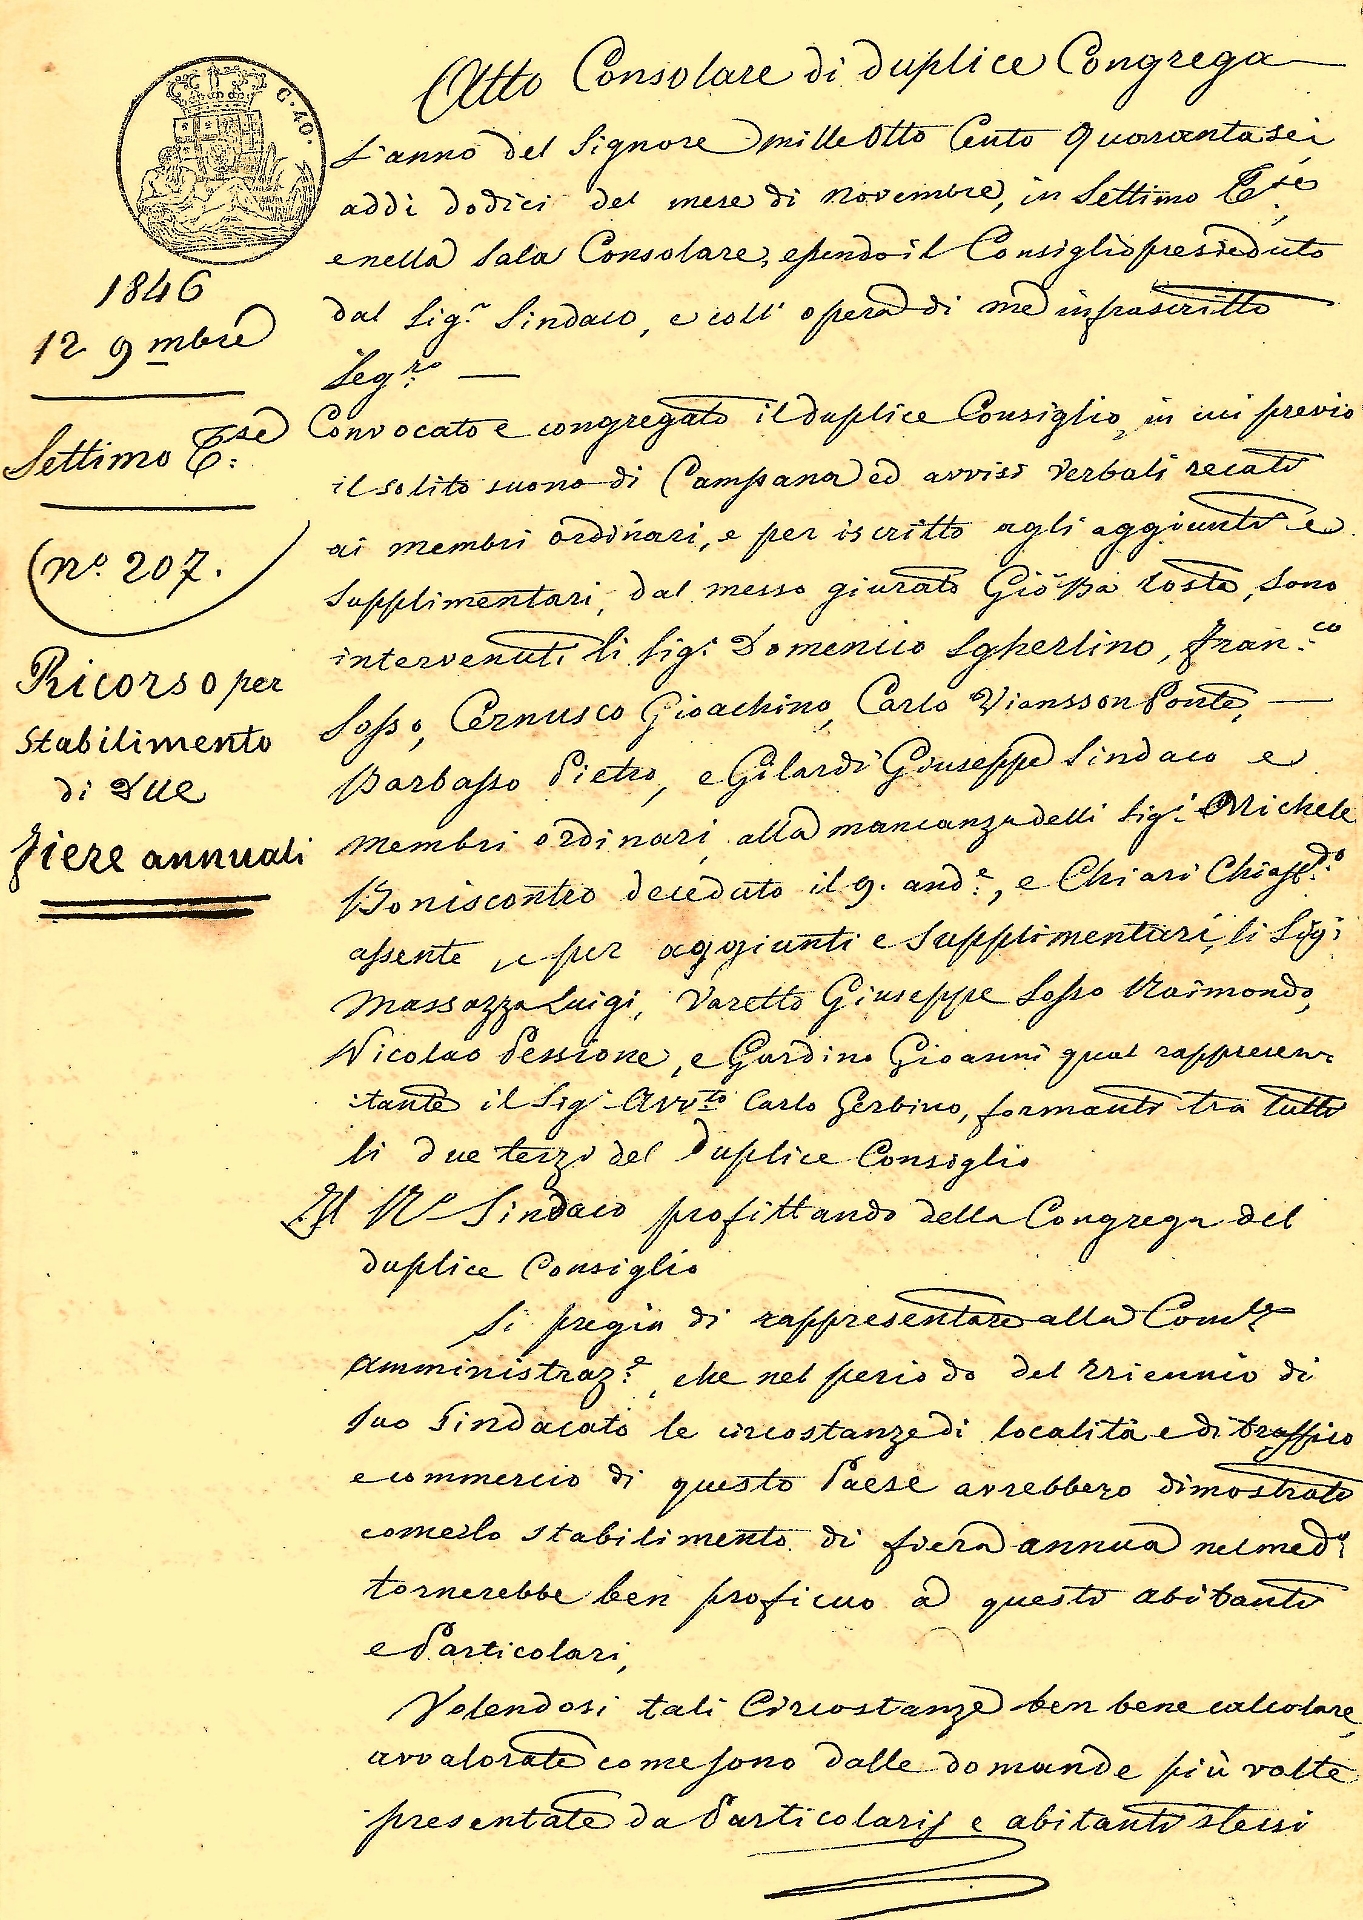 Atto Consolare di duplice Congrega
C. 40.
L'anno del Signore mille Otto Cento Quarantasei
addi dodici del mese di Novembre, in Settimo T.se,
e nella Sala Consolare, essendo il Consiglio presieduto
dal Sig.r Sindaco, e coll' opera di me infrascritto
Seg.ro —
1846
12 9mbre
Settimo T.se
(n.o 207.
Ricorso per
stabilimento
di Due
fiere annuali
Convocato e congregato il duplice Consiglio, in cui previo
il solito suono di Campana ed avvisi verbali recati
ai membri ordinari, e per iscritto agli aggiunti e
supplimentari, dal messo giurato Gio Bta Costa, sono
intervenuti li Sig.i Domenico Sgherlino, Fran.co
Sosso, Cernusco Gioachino, Carlo Viansson Ponte, —
Barbasso Pietro, e Gilardi Giuseppe Sindaco e
membri ordinari, alla mancanza delli Sig.i Michele
Boniscontro deceduto il 9. and.e, e Chiari Chiaff.do
assente, e per aggiunti e supplimentari, li Sig.i
Massazza Luigi, Varetto Giuseppe Sosso Raimondo,
Nicolao Pessione, e Gardino Gioanni qual rappresen-
:tante il Sig.r Avv.to Carlo Gerbino, formanti tra tutti
li due terzi del Duplice Consiglio
Il Sindaco profittando della Congrega del
duplice Consiglio
Si pregia di rappresentare alla Com.le
amministraz.e, che nel periodo del triennio di
suo Sindacato le circostanze di località e di traffico
e commercio di questo Paese avrebbero dimostrato
come lo stabilimento di fiera annua nel med.o
tornerebbe ben proficuo a questi abitanti
e Particolari,
Volendosi tali Circostanze ben bene calcolare,
avvalorate come sono dalle domande più volte
presentate da Particolarij e abitanti stessi